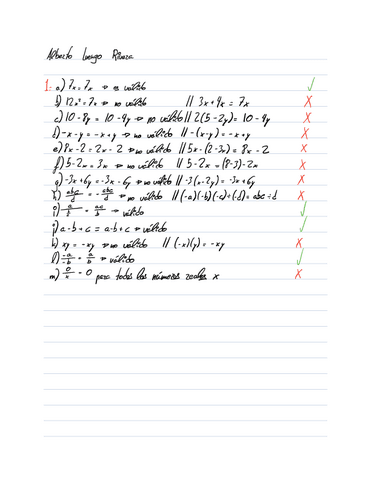 Alberto Luengo
1- a) 7x = 7x → es válido ✓
b) 12x² = 7x → no válido // 3x + 4x = 7x X
c) 10 - 8y = 10 - 4y → no válido // 2(5 - 2y) = 10 - 4y X
d) -x - y = -x + y → no válido // -(x - y) = -x + y X
e) 8x - 2 = 2x - 2 → no válido // 5x - (2 - 3x) = 8x - 2 X
f) 5 - 2x = 3x → no válido // 5 - 2x = (8-3) - 2x X
g) -3x + 6y = -3x - 6y → no válido // -3(x - 2y) = -3x + 6y X
h) abc/d = - abc/d → no válido // (-a)(-b)(-c)÷(-d) = abc÷d X
i) = ac/b → válido ✓
j) a - b + c = a - b + c → válido ✓
k) xy = -xy → no válido // (-x)(y) = -xy X
l) -a/-b = a/b → válido ✓
m) 0/x = 0 para todos los números reales x X